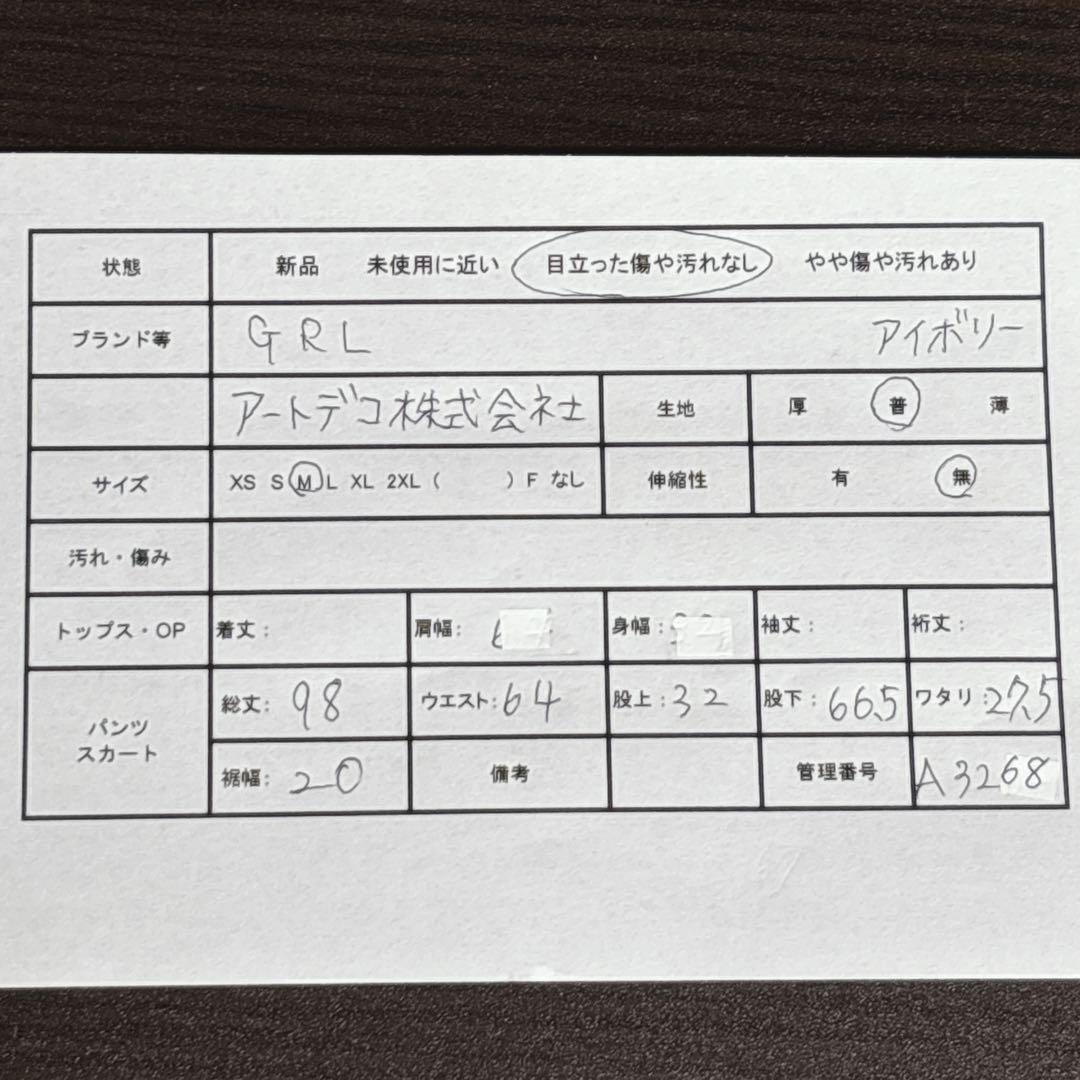 状態 新品 未使用に近い 目立った傷や汚れなし やや傷や汚れあり
ブランド等 GRL アイボリー
アートデコ株式会社 生地 厚 普 薄
サイズ XS S M L XL 2XL ( ) F なし 伸縮性 有 無
汚れ・傷み
トップス・OP 着丈: 肩幅: 身幅: 袖丈: 裄丈:
パンツ スカート 総丈: 98 ウエスト: 64 股上: 32 股下: 66.5 ワタリ: 27.5
裾幅: 20 備考 管理番号 A3268